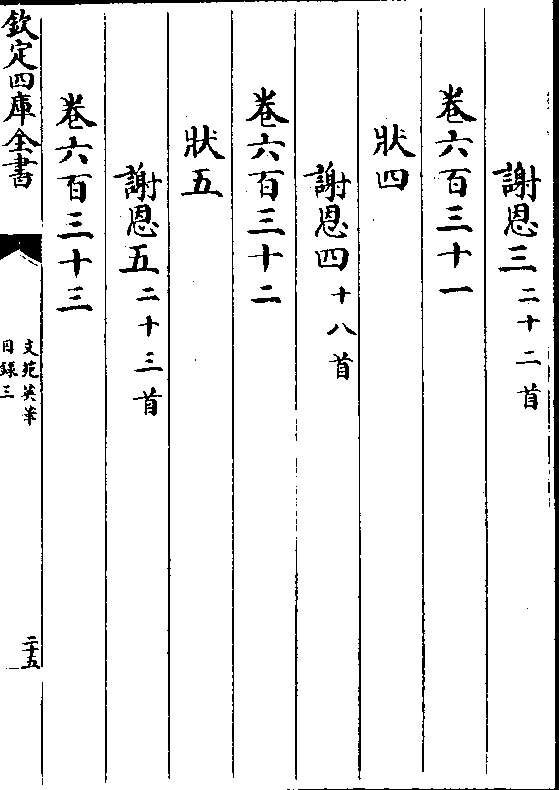 謝恩三二十二首
卷六百三十一
狀四
謝恩四十八首
卷六百三十二
狀五
謝恩五二十三首
卷六百三十三
欽定四庫全書
文苑英華
目錄三
二十五